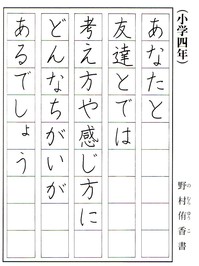 (小学四年)
あなたと
友達とでは
考え方や感じ方に
どんなちがいが
あるでしょう
野村侑香書
のむらゆうこ